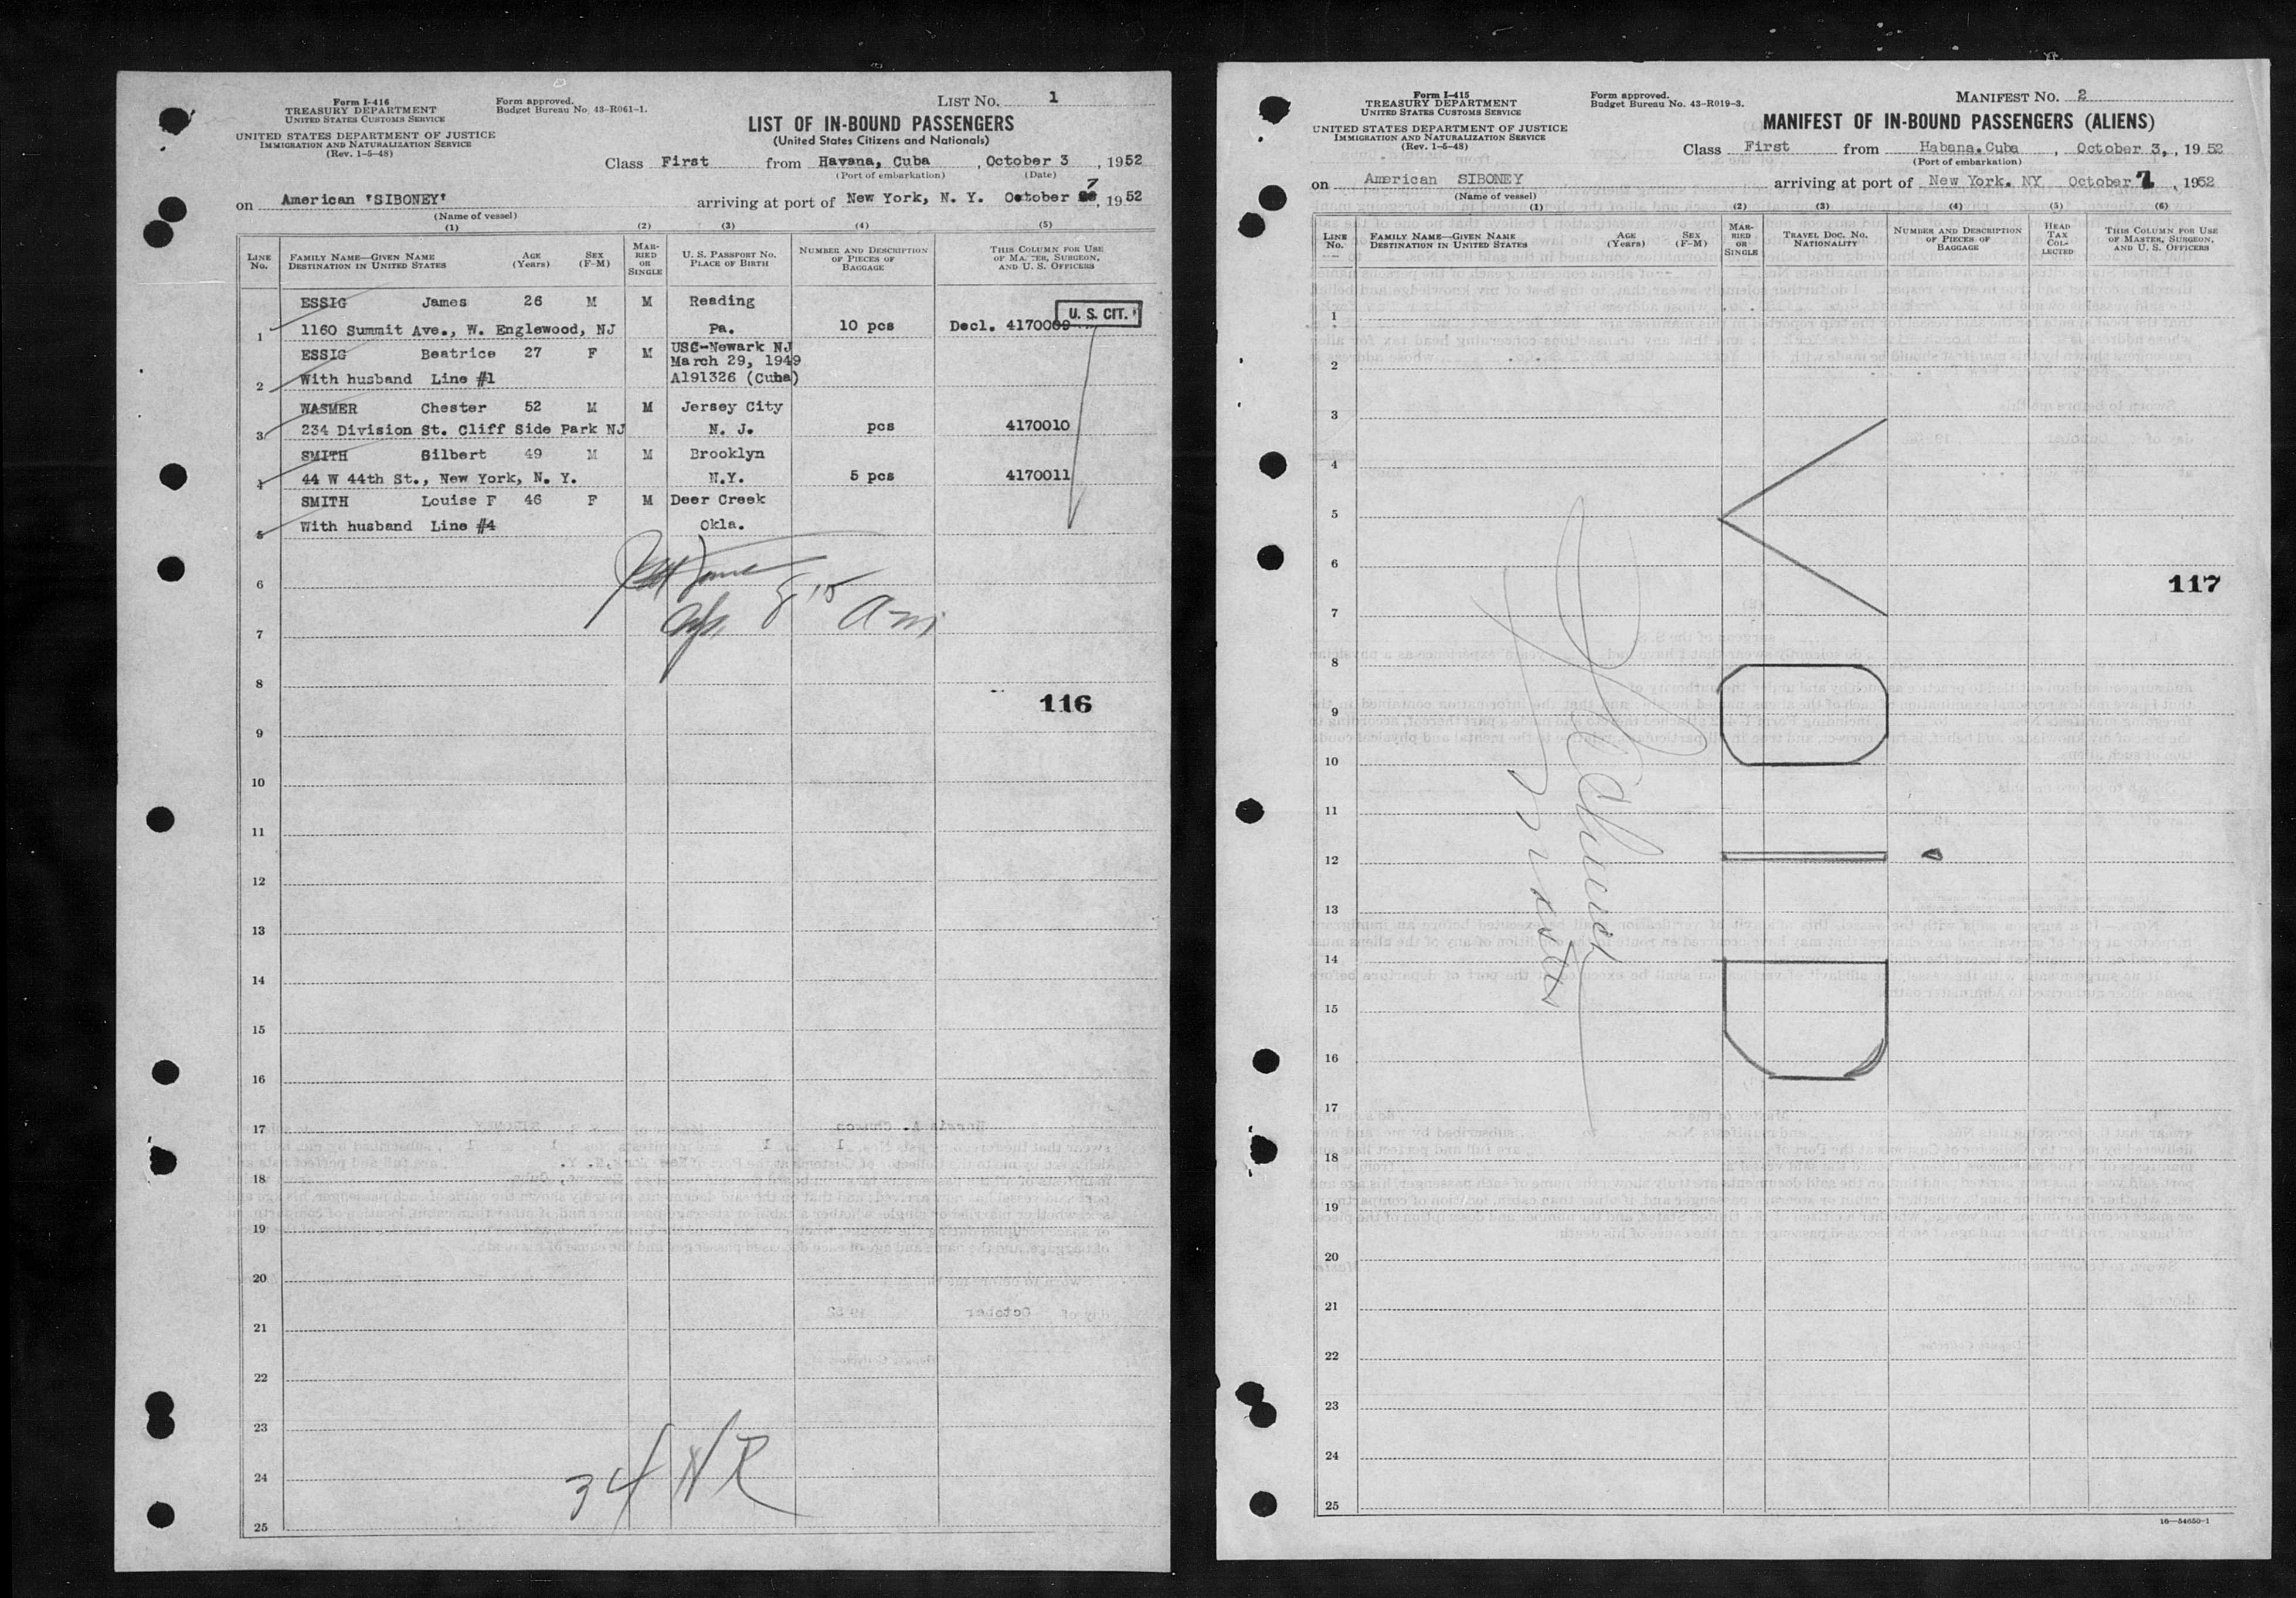 Form I-416
TREASURY DEPARTMENT
UNITED STATES CUSTOMS SERVICE
UNITED STATES DEPARTMENT OF JUSTICE
IMMIGRATION AND NATURALIZATION SERVICE
(Rev. 1-5-48)
Form approved.
Budget Bureau No. 43-R061-1.
LIST NO. 1
LIST OF IN-BOUND PASSENGERS
(United States Citizens and Nationals)
Class First from Havana, Cuba, October 3, 1952
(Port of embarkation) (Date)
on American "SIBONEY" arriving at port of New York, N. Y. October 7, 1952
(Name of vessel)
(1) (2) (3) (4) (5)
LINE NO. FAMILY NAME—GIVEN NAME DESTINATION IN UNITED STATES AGE (Years) SEX (F-M) MARRIED OR SINGLE U. S. PASSPORT NO. PLACE OF BIRTH NUMBER AND DESCRIPTION OF PIECES OF BAGGAGE THIS COLUMN FOR USE OF MASTER, SURGEON, AND U. S. OFFICERS
ESSIG James 26 M M Reading
U. S. CIT.
1 1160 Summit Ave., W. Englewood, NJ Pa. 10 pcs Decl. 4170009
ESSIG Beatrice 27 F M USC-Newark NJ
March 29, 1949
2 With husband Line #1 A191326 (Cuba)
WASMER Chester 52 M M Jersey City
3 234 Division St. Cliff Side Park NJ N. J. pcs 4170010
SMITH Gilbert 49 M M Brooklyn
4 44 W 44th St., New York, N. Y. N.Y. 5 pcs 4170011
SMITH Louise F 46 F M Deer Creek
5 With husband Line #4 Okla.
6
8 15 Am
7
8
116
9
10
11
12
13
14
15
16
17
18
19
20
21
22
23
34 NR
24
25
Form I-415
TREASURY DEPARTMENT
UNITED STATES CUSTOMS SERVICE
UNITED STATES DEPARTMENT OF JUSTICE
IMMIGRATION AND NATURALIZATION SERVICE
(Rev. 1-5-48)
Form approved.
Budget Bureau No. 43-R019-3.
MANIFEST NO. 2
MANIFEST OF IN-BOUND PASSENGERS (ALIENS)
Class First from Habana.Cuba, October 3,, 1952
(Port of embarkation)
on American SIBONEY arriving at port of New York. NY October 7, 1952
(Name of vessel)
(1) (2) (3) (4) (5) (6)
LINE NO. FAMILY NAME—GIVEN NAME DESTINATION IN UNITED STATES AGE (Years) SEX (F-M) MARRIED OR SINGLE TRAVEL DOC. NO. NATIONALITY NUMBER AND DESCRIPTION OF PIECES OF BAGGAGE HEAD TAX COLLECTED THIS COLUMN FOR USE OF MASTER, SURGEON, AND U. S. OFFICERS
1
2
3
4
5
6
117
7
8
9
10
11
12
13
14
15
16
17
18
19
20
21
22
23
24
25
VOID
16—54650-1